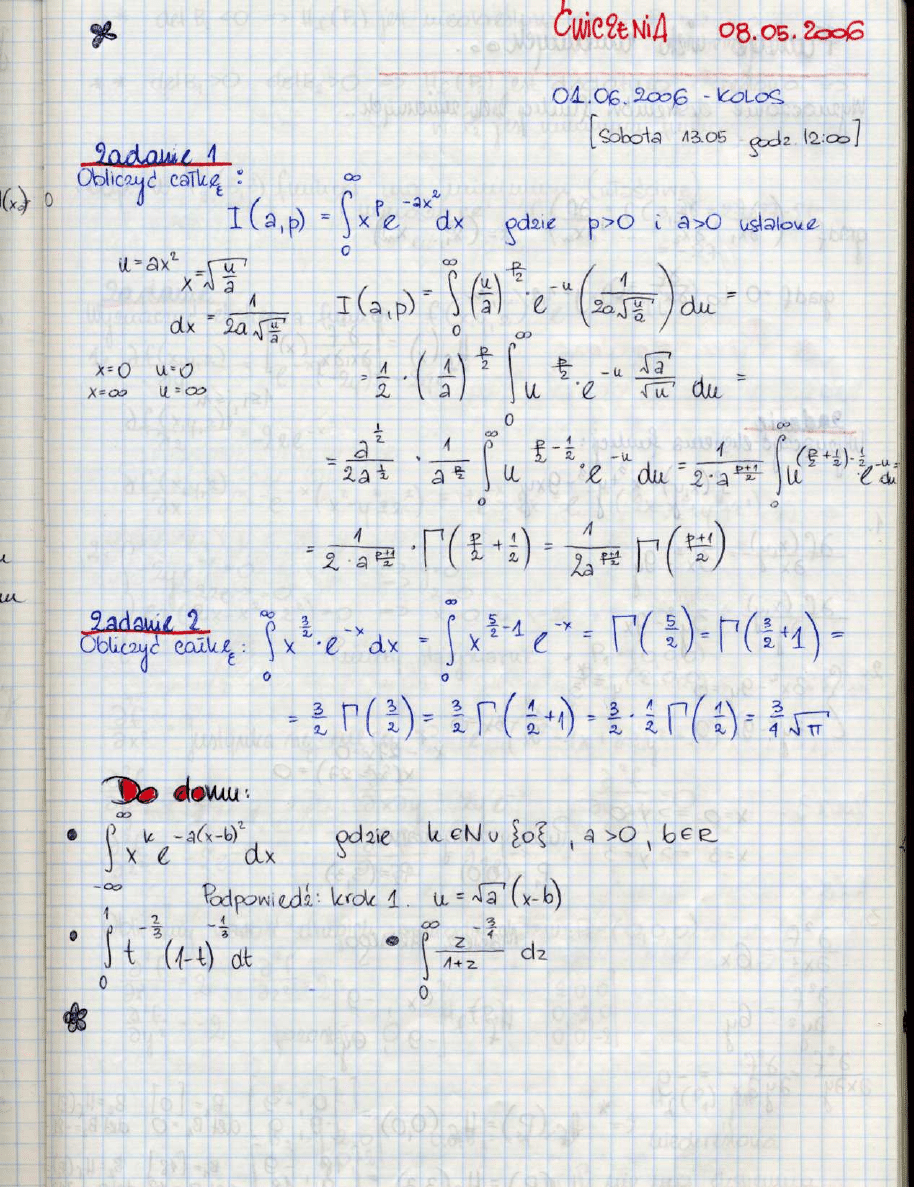 ĆWICZENIA 08.05.2006
01.06.2006 - KOLOS
[Sobota 13.05 godz 12:00]
Zadanie 1
Obliczyć całkę:
I(a,p) = ∫₀^∞ x^p e^{-ax²} dx gdzie p>0 i a>0 ustalone
u=ax² x=√(u/a)
dx = 1/(2a√(u/a))
I(a,p) = ∫₀^∞ (u/a)^{p/2} · e^{-u} (1/(2a√(u/a))) du =
x=0 u=0
x=∞ u=∞
= 1/2 · (1/a)^{p/2} ∫₀^∞ u^{p/2} · e^{-u} √a/√u du =
= a^{1/2}/(2a^{1/2}) · 1/a^{p/2} ∫₀^∞ u^{p/2 - 1/2} · e^{-u} du = 1/(2·a^{(p+1)/2}) ∫₀^∞ u^{(p/2+1/2)-1/2} e^{-u} du =
= 1/(2·a^{(p+1)/2}) · Γ(p/2 + 1/2) = 1/(2a^{(p+1)/2}) Γ((p+1)/2)
Zadanie 2
Obliczyć całkę: ∫₀^∞ x^{3/2} · e^{-x} dx = ∫₀^∞ x^{5/2 - 1} e^{-x} = Γ(5/2) = Γ(3/2+1) =
= 3/2 Γ(3/2) = 3/2 Γ(1/2+1) = 3/2 · 1/2 Γ(1/2) = 3/4 √π
Do domu:
• ∫_{-∞}^∞ x^k e^{-a(x-b)²} dx gdzie k∈N∪{0}, a>0, b∈R
Podpowiedź: krok 1. u=√a (x-b)
• ∫₀^1 t^{-2/3} (1-t)^{-1/3} dt • ∫₀^∞ z^{-3/4}/(1+z) dz